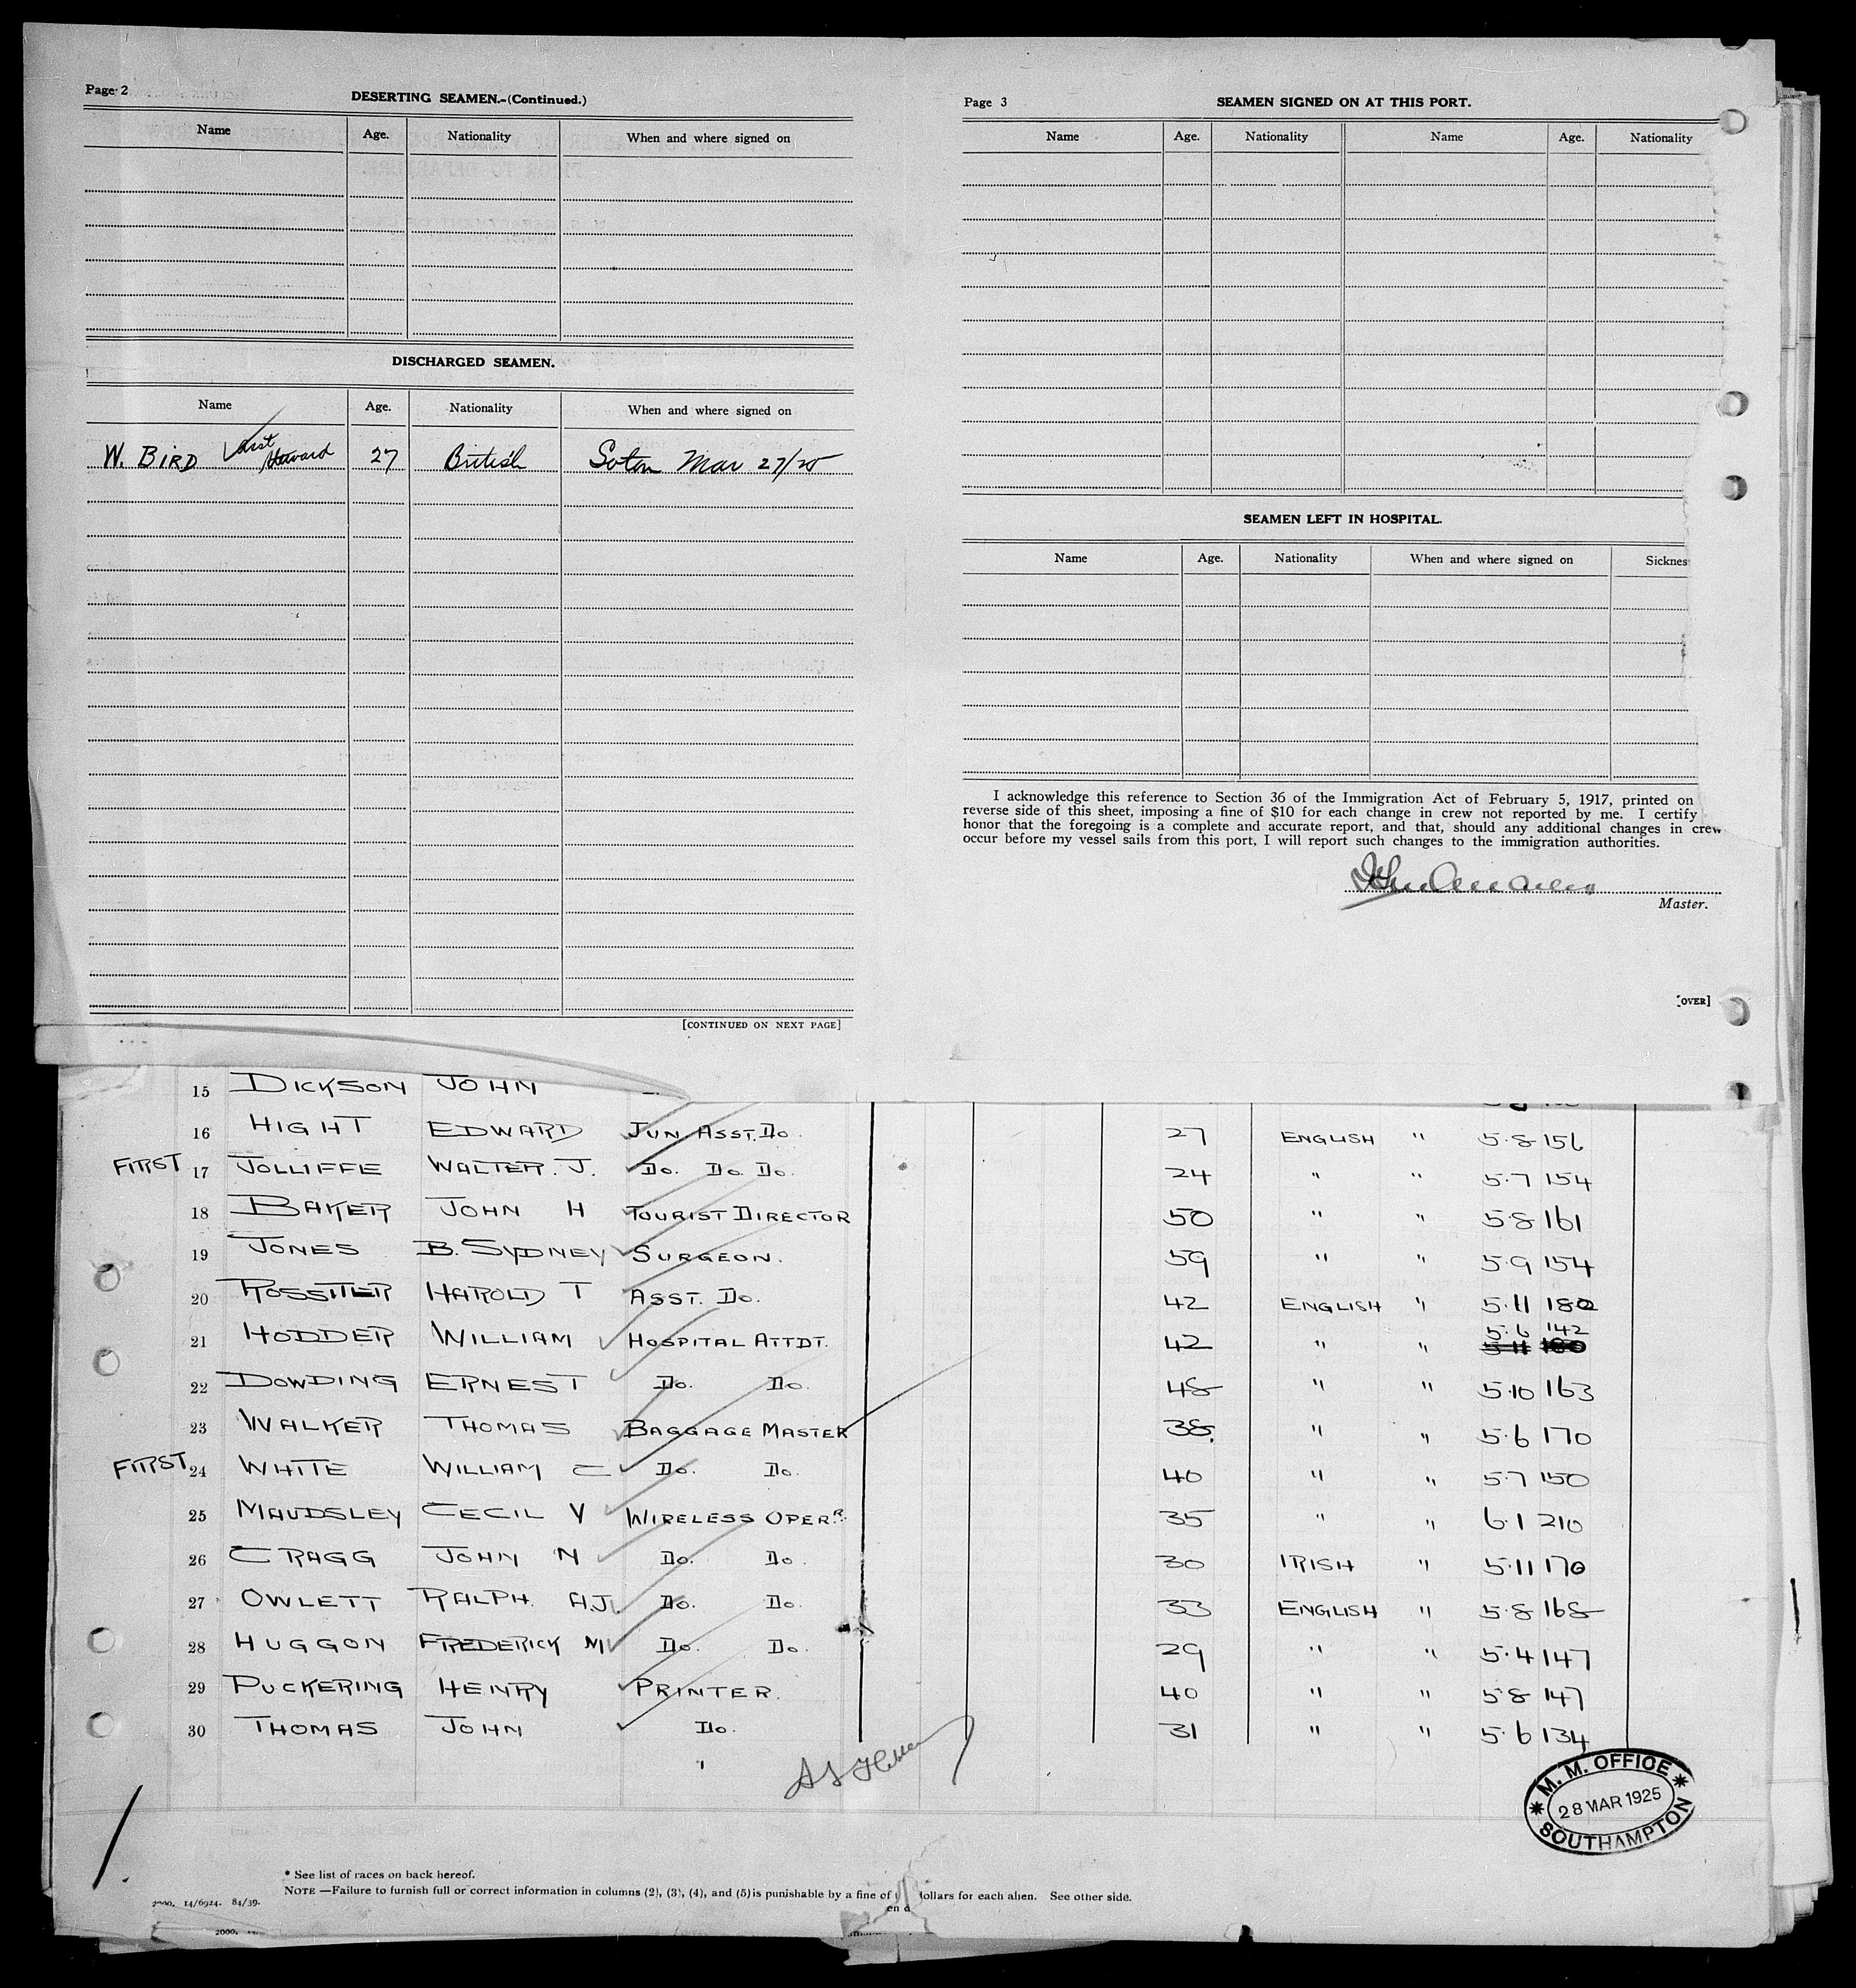 Page 2
DESERTING SEAMEN.-(Continued.)
Name Age. Nationality When and where signed on
DISCHARGED SEAMEN.
Name Age. Nationality When and where signed on
W. BIRD asst Steward 27 British Soton Mar 27/25
[CONTINUED ON NEXT PAGE]
Page 3
SEAMEN SIGNED ON AT THIS PORT.
Name Age. Nationality Name Age. Nationality
SEAMEN LEFT IN HOSPITAL.
Name Age. Nationality When and where signed on Sicknes
I acknowledge this reference to Section 36 of the Immigration Act of February 5, 1917, printed on
reverse side of this sheet, imposing a fine of $10 for each change in crew not reported by me. I certify
honor that the foregoing is a complete and accurate report, and that, should any additional changes in crew
occur before my vessel sails from this port, I will report such changes to the immigration authorities.
Master.
[OVER]
15 DICKSON JOHN
16 HIGHT EDWARD JUN. ASST. Do. 27 ENGLISH " 5·8 156
FIRST 17 JOLLIFFE WALTER. J. Do. Do. Do. 24 " " 5·7 154
18 BAKER JOHN H TOURIST DIRECTOR 50 " " 5·8 161
19 JONES B. SYDNEY SURGEON. 59 " " 5·9 154
20 ROSSITER HAROLD T ASST. Do. 42 ENGLISH " 5·11 180
21 HODDER WILLIAM HOSPITAL ATTDT. 42 " " 5·6 142
5·11 180
22 DOWDING ERNEST Do. Do. 48 " " 5·10 163
23 WALKER THOMAS BAGGAGE MASTER 38. " " 5·6 170
FIRST 24 WHITE WILLIAM C Do. Do. 40 " " 5·7 150
25 MAUDSLEY CECIL V WIRELESS OPERR. 35 " " 6·1 210
26 CRAGG JOHN N Do. Do. 30 IRISH " 5·11 170
27 OWLETT RALPH. A.J. Do. Do. 33 ENGLISH " 5·8 168
28 HUGGON FREDERICK M Do. Do. 29 " " 5·4 147
29 PUCKERING HENRY PRINTER. 40 " " 5·8 147
30 THOMAS JOHN Do. 31 " " 5·6 134
"
M. M. OFFICE
28 MAR 1925
SOUTHAMPTON
* See list of races on back hereof.
NOTE —Failure to furnish full or correct information in columns (2), (3), (4), and (5) is punishable by a fine of dollars for each alien. See other side.
en d
2000. 14/6924. 84/39.
2000.